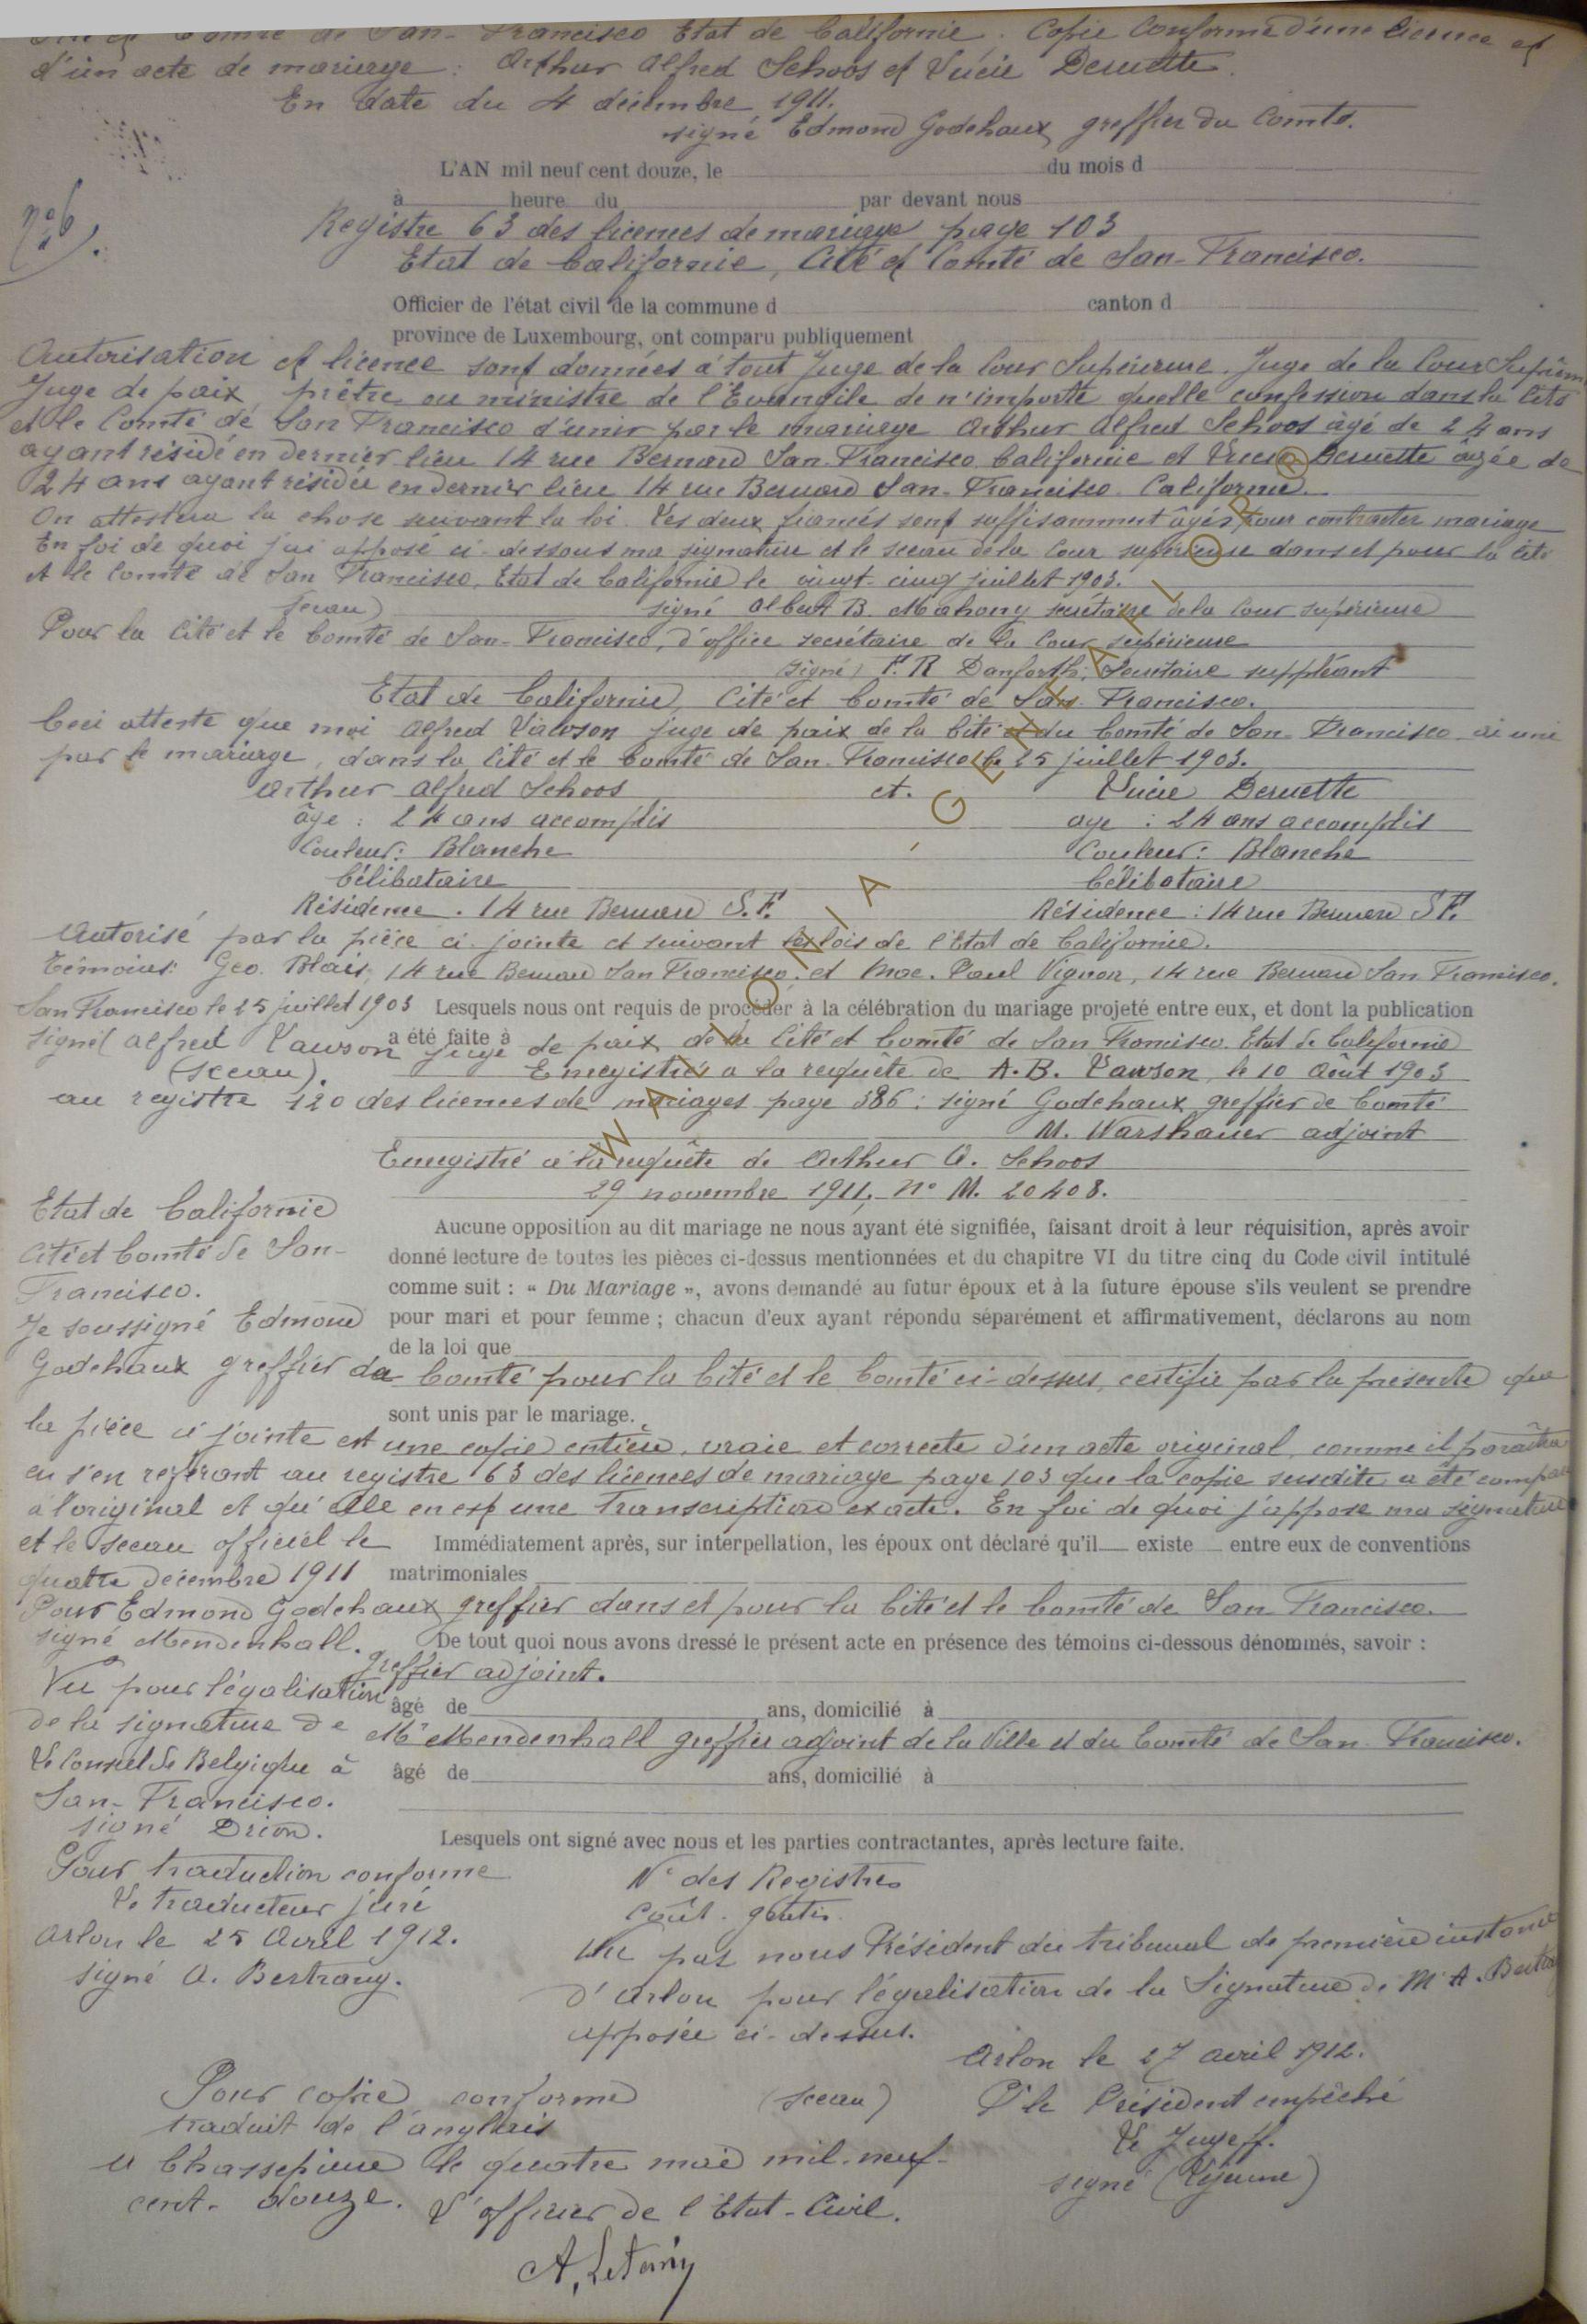 Comté de San-Francisco Etat de Californie. Copie conforme d'une licence et
d'un acte de mariage : Arthur Alfred Schoos et Lucie Deruette.
En date du 4 décembre 1911.
signé Edmond Godchaux, greffier du Comté.
L'AN mil neuf cent douze, le du mois d
à heure du par devant nous
N° 6.
Registre 63 des licences de mariage page 103
Etat de Californie, Cité et Comté de San-Francisco.
Officier de l'état civil de la commune d canton d
province de Luxembourg, ont comparu publiquement
Autorisation et licence sont données à tout Juge de la Cour Supérieure. Juge de la Cour Suprême
Juge de paix, prêtre ou ministre de l'Evangile de n'importe quelle confession dans la Cité
et le Comté de San Francisco d'unir par le mariage Arthur Alfred Schoos âgé de 24 ans
ayant résidé en dernier lieu 14 rue Bernard San-Francisco Californie et Lucie Deruette âgée de
24 ans ayant résidée en dernier lieu 14 rue Bernard San-Francisco Californie.
On attestera la chose suivant la loi. Les deux fiancés sont suffisamment âgés pour contracter mariage
En foi de quoi j'ai apposé ci-dessous ma signature et le sceau de la Cour supérieure dans et pour la Cité
et le Comté de San Francisco, Etat de Californie le vingt-cinq juillet 1903.
(sceau) signé Albert B. Mahony secrétaire de la Cour supérieure
Pour la Cité et le Comté de San-Francisco, d'office secrétaire de la Cour supérieure
(signé) F. R Danforth, Secrétaire suppléant
Etat de Californie, Cité et Comté de San Francisco.
Ceci atteste que moi Alfred Lawson juge de paix de la Cité et du Comté de San-Francisco ai uni
par le mariage, dans la Cité et le Comté de San-Francisco le 25 juillet 1903.
Arthur Alfred Schoos et. Lucie Deruette
âge : 24 ans accomplis age : 24 ans accomplis
Couleur : Blanche Couleur : Blanche
Célibataire Célibataire
Résidence . 14 rue Bernard S.F. Résidence : 14 rue Bernard S F.
Autorisé par la pièce ci-jointe et suivant les lois de l'Etat de Californie.
Témoins : Geo. Blais, 14 rue Bernard San Francisco, et Mme. Paul Vignon, 14 rue Bernard San Francisco.
San Francisco le 25 juillet 1903 Lesquels nous ont requis de procéder à la célébration du mariage projeté entre eux, et dont la publication
a été faite à
signé (Alfred Lawson juge de paix de la Cité et Comté de San Francisco. Etat de Californie
(sceau). Enregistrée a la requête de A. B. Lawson, le 10 Août 1903
au registre 120 des licences de mariages page 386 : signé Godchaux greffier de Comté
M. Warshauer adjoint
Enregistré à la requête de Arthur A. Schoos
29 novembre 1911, N° M. 20408.
Aucune opposition au dit mariage ne nous ayant été signifiée, faisant droit à leur réquisition, après avoir
donné lecture de toutes les pièces ci-dessus mentionnées et du chapitre VI du titre cinq du Code civil intitulé
comme suit : « Du Mariage », avons demandé au futur époux et à la future épouse s'ils veulent se prendre
pour mari et pour femme ; chacun d'eux ayant répondu séparément et affirmativement, déclarons au nom
de la loi que
Etat de Californie
Cité et Comté de San-
Francisco.
Je soussigné Edmond
Godchaux greffier du Comté pour la Cité et le Comté ci-dessus, certifie par la présente que
sont unis par le mariage.
la pièce ci jointe est une copie entière, vraie et correcte d'un acte original, comme il paraîtra
en s'en référant au registre 63 des licences de mariage page 103 que la copie susdite a été comparée
à l'original et qu'elle en est une Transcription exacte. En foi de quoi j'appose ma signature
et le sceau officiel le
quatre décembre 1911
Immédiatement après, sur interpellation, les époux ont déclaré qu'il existe entre eux de conventions
matrimoniales
Pour Edmond Godchaux, greffier dans et pour la Cité et le Comté de San Francisco.
signé Mendenhall. greffier adjoint.
De tout quoi nous avons dressé le présent acte en présence des témoins ci-dessous dénommés, savoir :
âgé de ans, domicilié à
Vu pour légalisation
de la signature de Mr Mendenhall greffier adjoint de la Ville et du Comté de San Francisco.
âgé de ans, domicilié à
Le Consul de Belgique à
San-Francisco.
signé Drion.
Lesquels ont signé avec nous et les parties contractantes, après lecture faite.
Pour traduction conforme
Le traducteur juré
Arlon le 25 Avril 1912.
signé A. Bertrang.
N° des Registres
Coût. gratis
Vu par nous Président du tribunal de première instance
d'Arlon pour légalisation de la Signature de Mr A. Bertrang
apposée ci-dessus.
Arlon le 27 avril 1912.
(sceau) Pr le Président empêché
Le Juge ff.
signé (Lejeune)
Pour copie conforme
traduit de l'anglais
à Chassepierre le quatre mai mil-neuf-
cent-douze. L'officier de l'Etat-Civil.
WALLONIA - GENEALOGIE